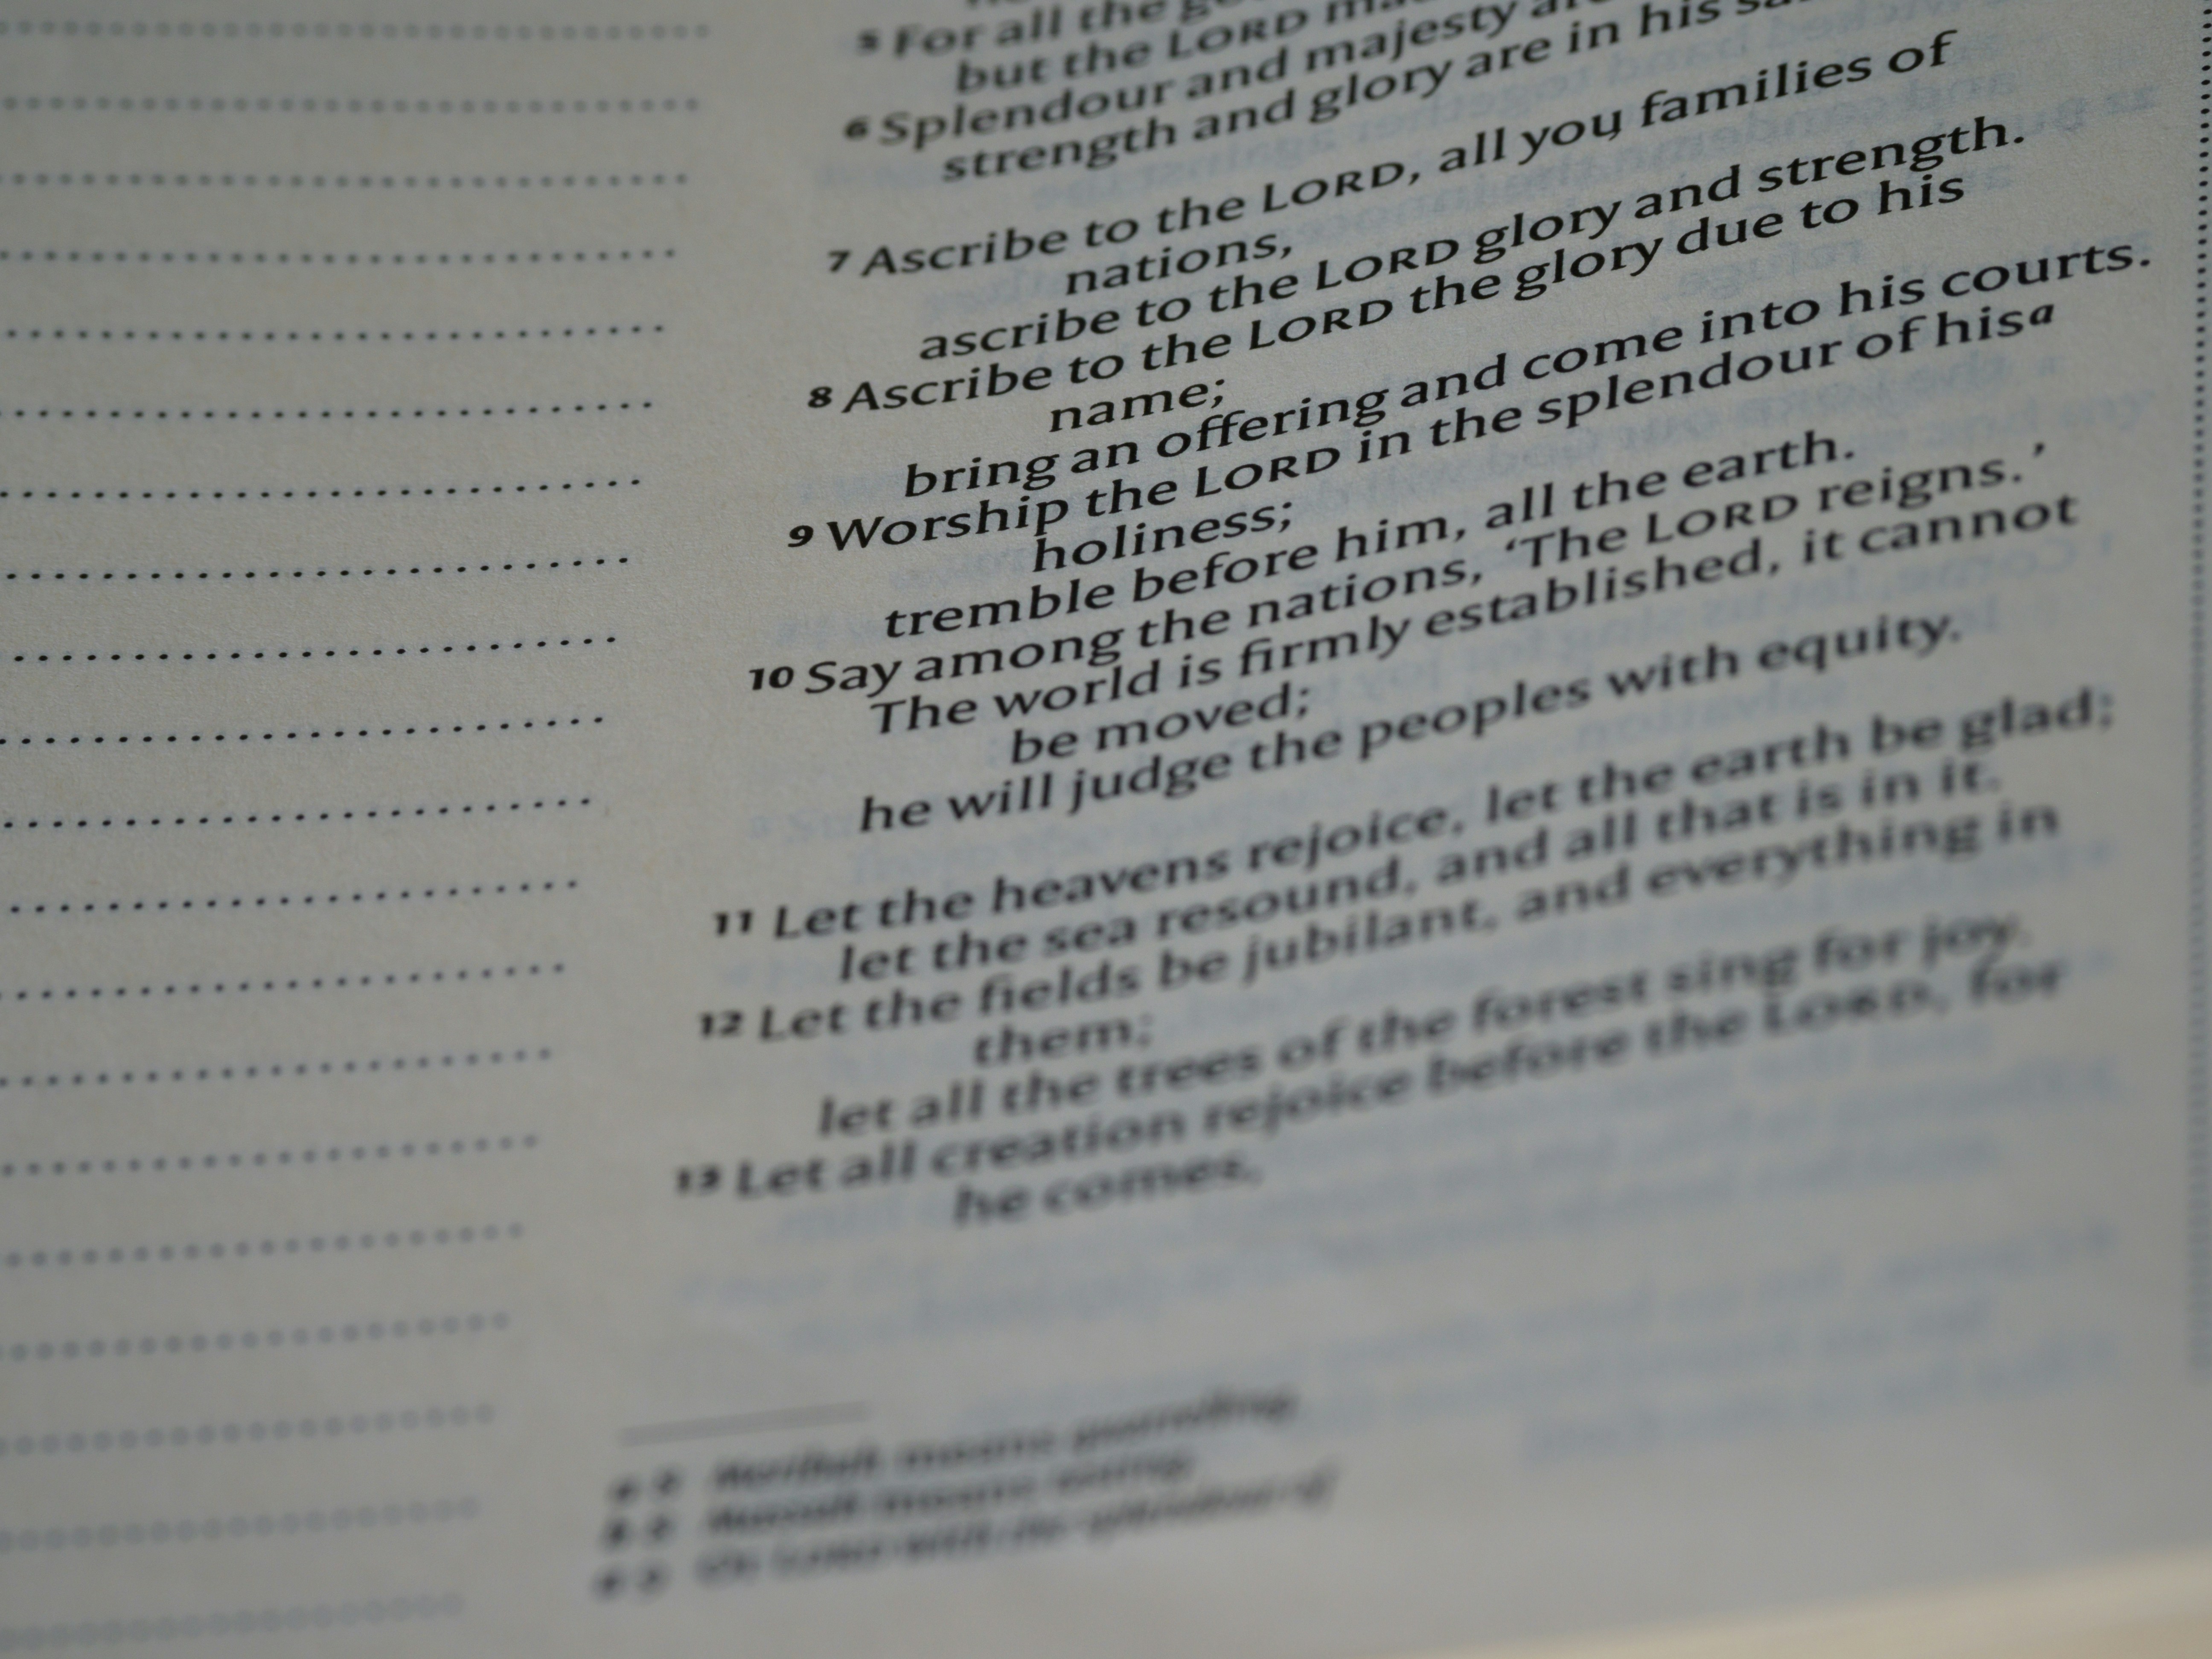 5 For all the
but the LORD
6 Splendour and majesty
strength and glory are in his
7 Ascribe to the LORD, all you families of
nations,
ascribe to the LORD glory and strength.
8 Ascribe to the LORD the glory due to his
name;
bring an offering and come into his courts.
9 Worship the LORD in the splendour of hisa
holiness;
tremble before him, all the earth.
10 Say among the nations, ‘The LORD reigns.’
The world is firmly established, it cannot
be moved;
he will judge the peoples with equity.
11 Let the heavens rejoice, let the earth be glad;
let the sea resound, and all that is in it.
12 Let the fields be jubilant, and everything in
them;
let all the trees of the forest sing for joy.
13 Let all creation rejoice before the LORD, for
he comes,